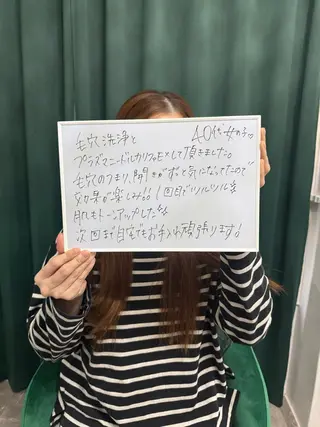 40代女の子♡
毛穴洗浄と
プラズマニードルカリフェモとして頂きました。
毛穴のつまり、開きがずっと気になってたので
効果が楽しみ!! 1回目でツルツル
肌もトーンアップした
次回まで自宅でもお手入れ頑張ります!